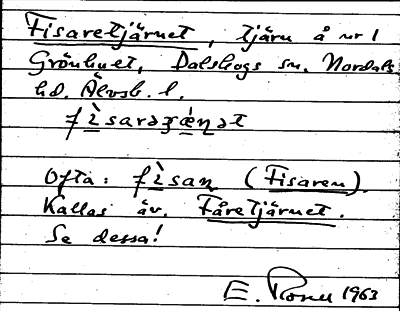 Fisaretjärnet, tjärn å nr 1
Grönhuet, Dalskogs sn. Nordals
hd. Älvsb. l.
fìsarəʒæ̀ɳət
Ofta: fìsaɳ (Fisaren).
Kallas äv. Fåretjärnet.
Se dessa!
E. 1963